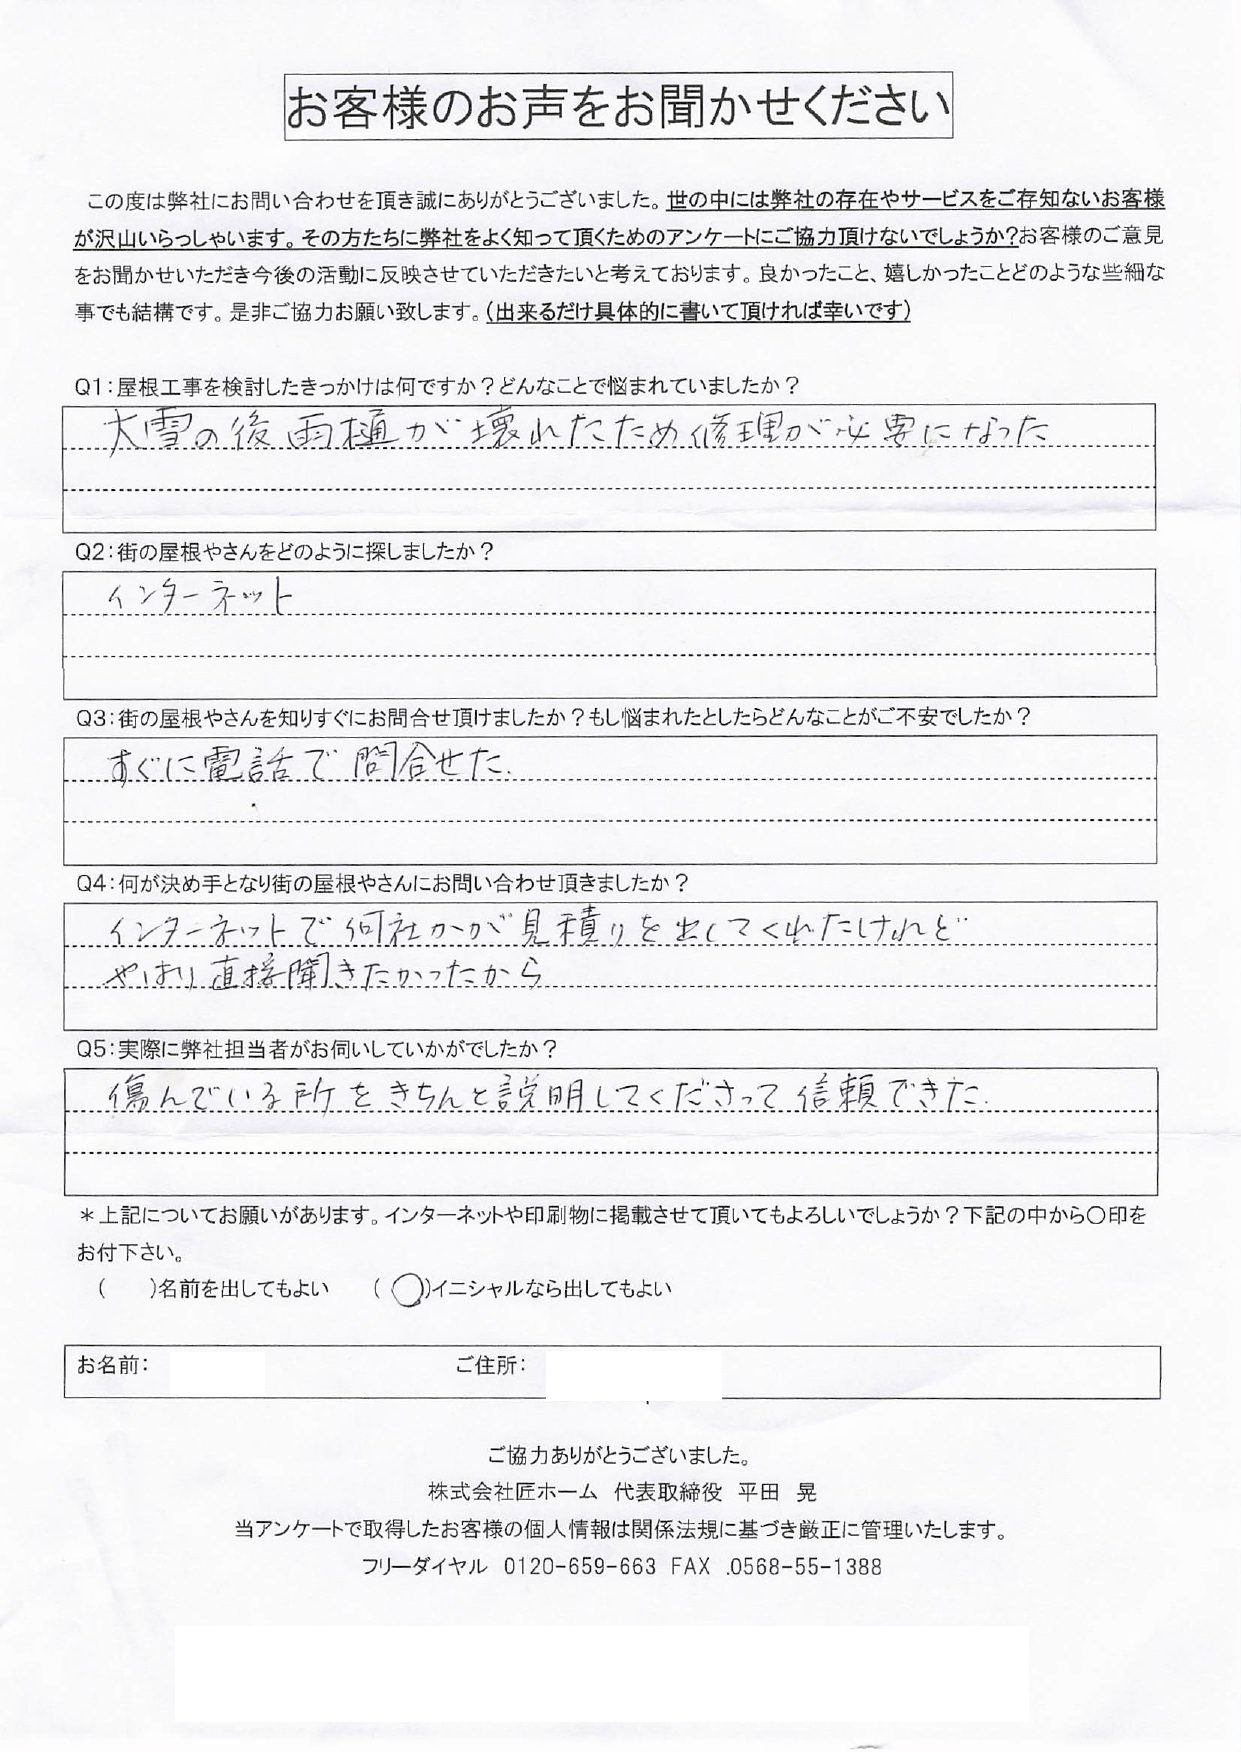 お客様のお声をお聞かせください
この度は弊社にお問い合わせを頂き誠にありがとうございました。世の中には弊社の存在やサービスをご存知ないお客様
が沢山いらっしゃいます。その方たちに弊社をよく知って頂くためのアンケートにご協力頂けないでしょうか?お客様のご意見
をお聞かせいただき今後の活動に反映させていただきたいと考えております。良かったこと、嬉しかったことどのような些細な
事でも結構です。是非ご協力お願い致します。(出来るだけ具体的に書いて頂ければ幸いです)
Q1:屋根工事を検討したきっかけは何ですか?どんなことで悩まれていましたか?
大雪の後雨樋が壊れたため修理が必要になった
Q2:街の屋根やさんをどのように探しましたか?
インターネット
Q3:街の屋根やさんを知りすぐにお問合せ頂けましたか?もし悩まれたとしたらどんなことがご不安でしたか?
すぐに電話で問合せた.
Q4:何が決め手となり街の屋根やさんにお問い合わせ頂きましたか?
インターネットで何社かが見積りを出してくれたけれど
やはり直接聞きたかったから
Q5:実際に弊社担当者がお伺いしていかがでしたか?
傷んでいる所をきちんと説明してくださって信頼できた.
*上記についてお願いがあります。インターネットや印刷物に掲載させて頂いてもよろしいでしょうか?下記の中から〇印を
お付下さい。
( )名前を出してもよい (〇)イニシャルなら出してもよい
お名前: ご住所:
ご協力ありがとうございました。
株式会社匠ホーム 代表取締役 平田 晃
当アンケートで取得したお客様の個人情報は関係法規に基づき厳正に管理いたします。
フリーダイヤル 0120-659-663 FAX .0568-55-1388